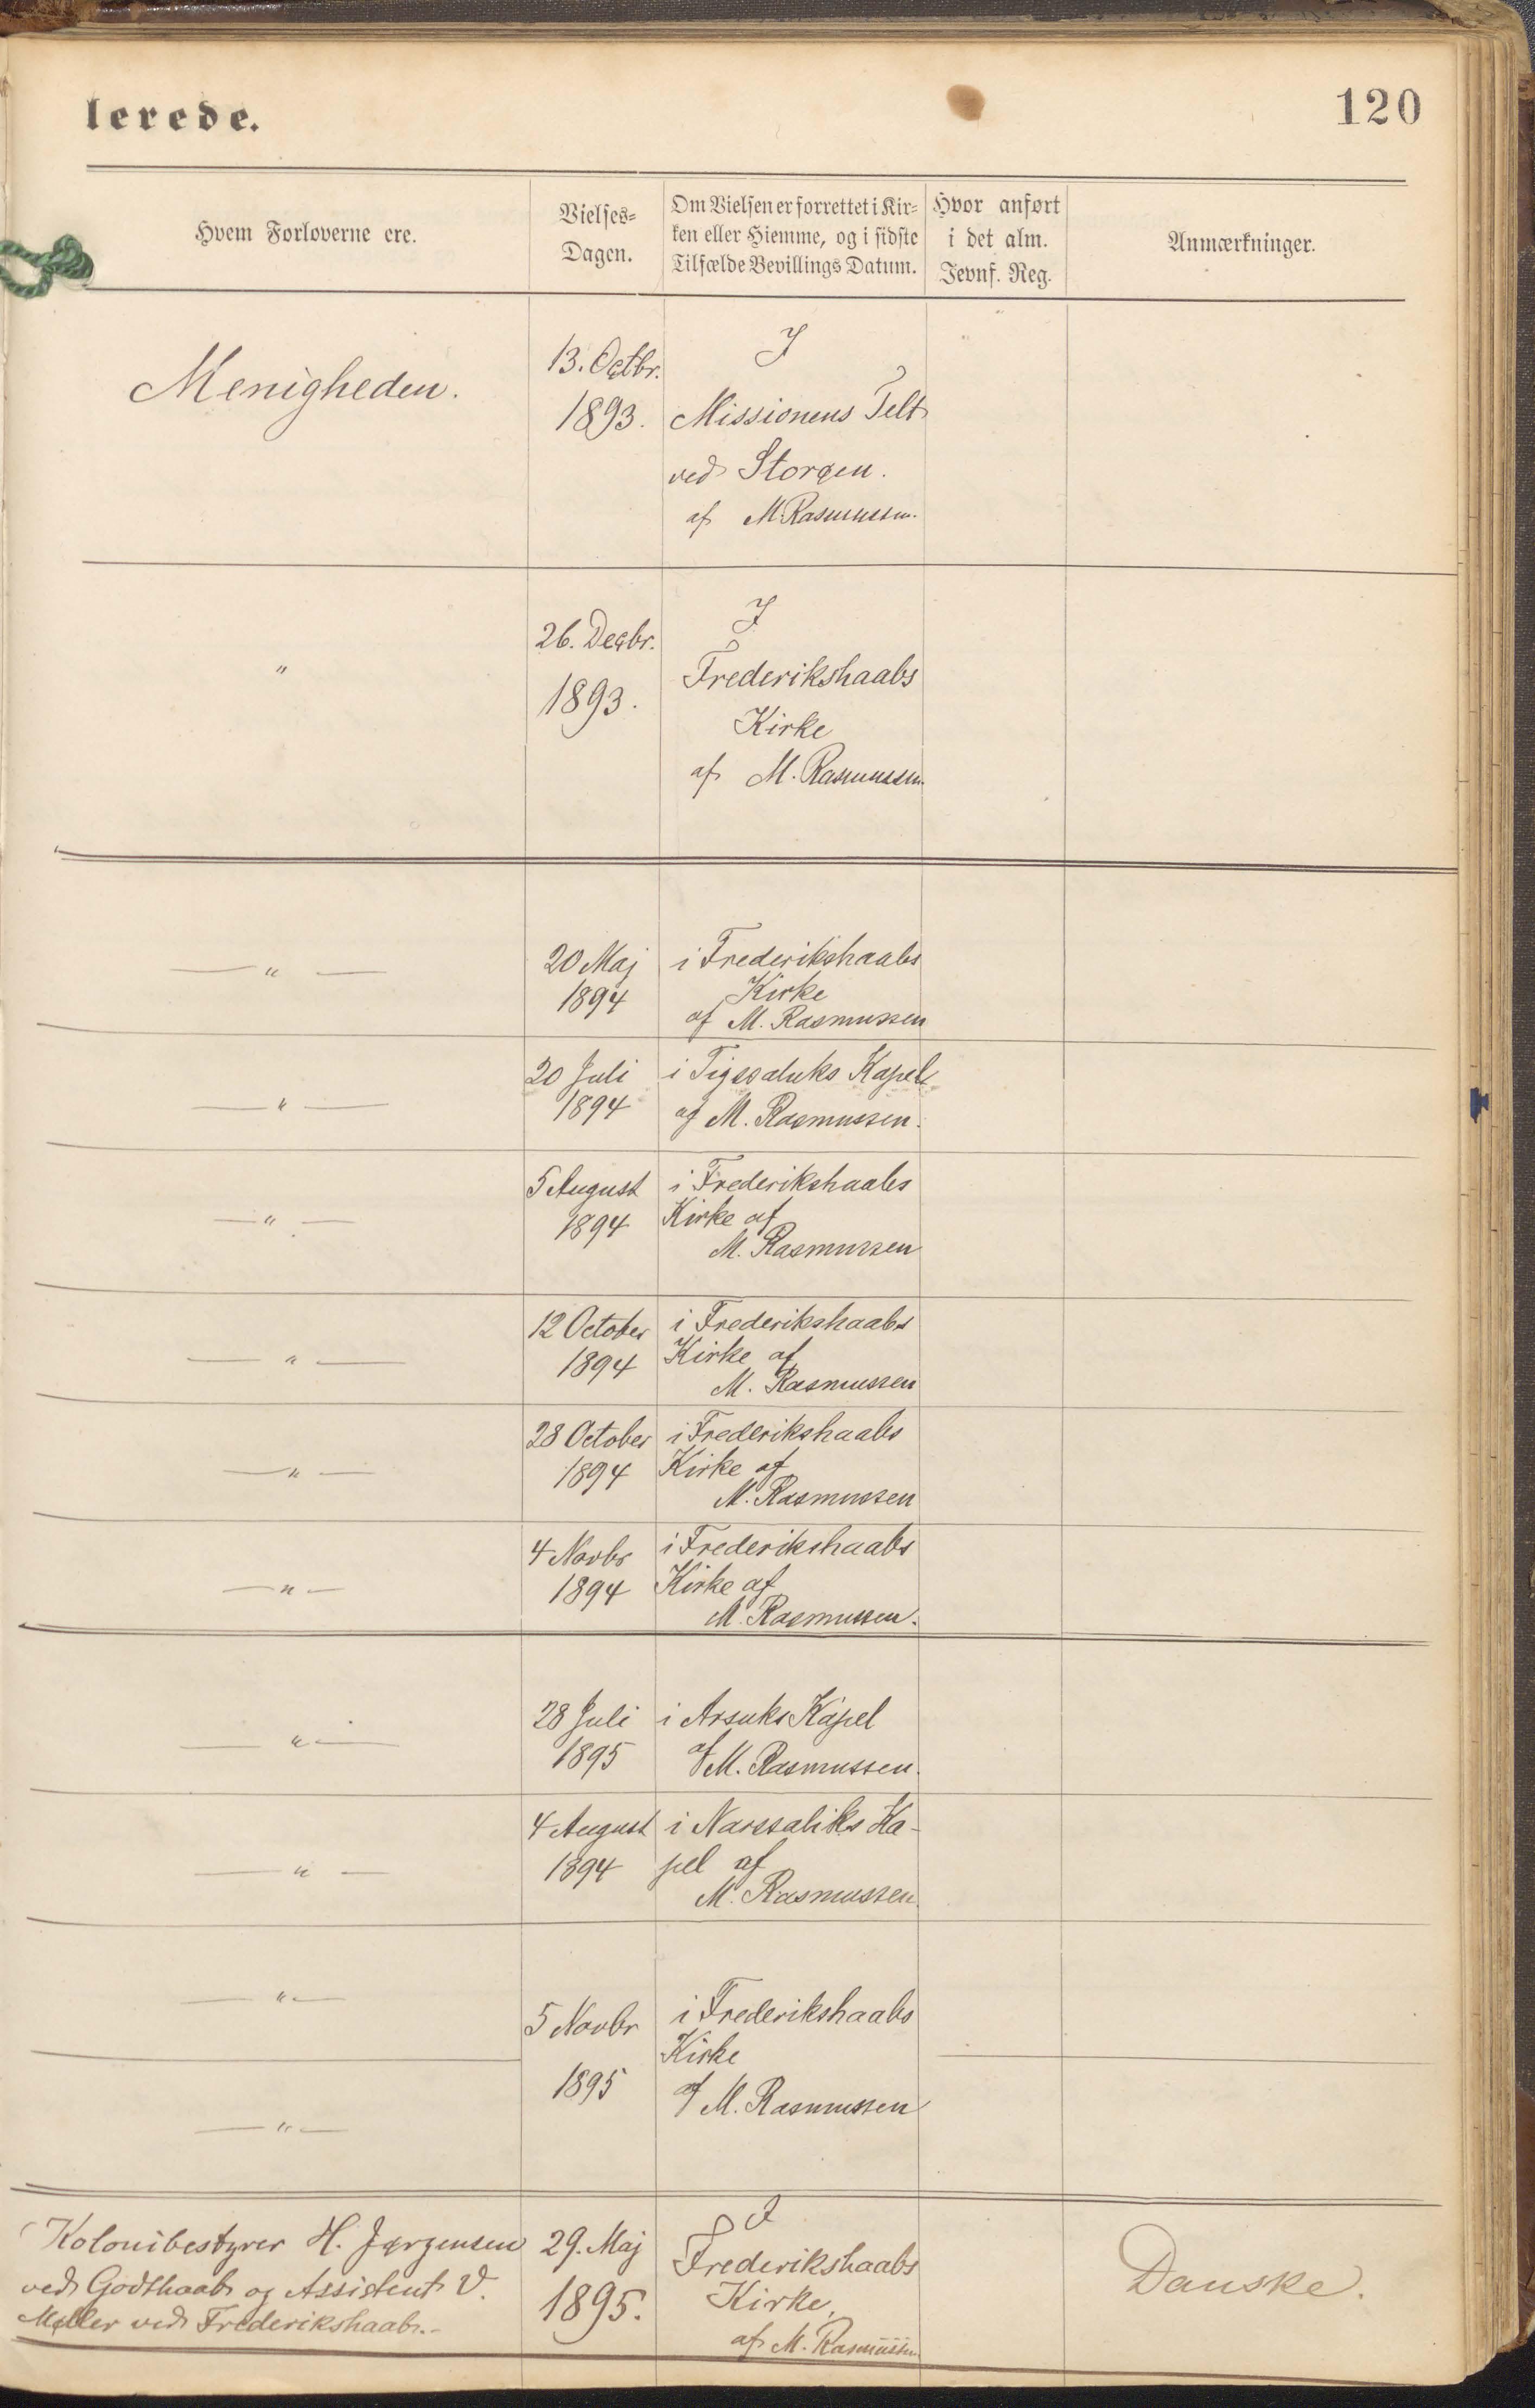 lerede.
120
Hvem Forloverne ere.
Vielses-
Dagen.
Om Vielsen er forrettet i Kir-
ken eller Hiemme, og i sidste
Tilfælde Bevillings Datum.
Hvor anført
i det alm.
Jevnf. Reg.
Anmærkninger.
Menigheden.
13. Octbr.
1893.
I
Missionens Telt
ved Storøen.
af M. Rasmussen.
"
26. Decbr.
1893.
I
Frederikshaabs
Kirke
af M. Rasmussen.
— " —
20 Maj
1894
i Frederikshaabs
Kirke
af M. Rasmussen
— " —
20 Juli
1894
i Tigssaluks Kapel
af M. Rasmussen.
— " —
5 August
1894
i Frederikshaabs
Kirke af
M. Rasmussen
— " —
12 October
1894
i Frederikshaabs
Kirke af
M. Rasmussen
— " —
28 October
1894
i Frederikshaabs
Kirke af
M. Rasmussen
— " —
4 Novbr
1894
i Frederikshaabs
Kirke af
M. Rasmussen.
— " —
28 Juli
1895
i Arsuks Kapel
af M. Rasmussen.
— " —
4 August
1894
i Narssaliks Ka-
pel af
M. Rasmussen.
— " —
5 Novbr
1895
i Frederikshaabs
Kirke
af M. Rasmussen
— " —
Kolonibestyrer H. Jørgensen
ved Godthaab og Assistent V.
Møller ved Frederikshaab.-
29. Maj
1895.
I
Frederikshaabs
Kirke,
af M. Rasmussen
Danske.